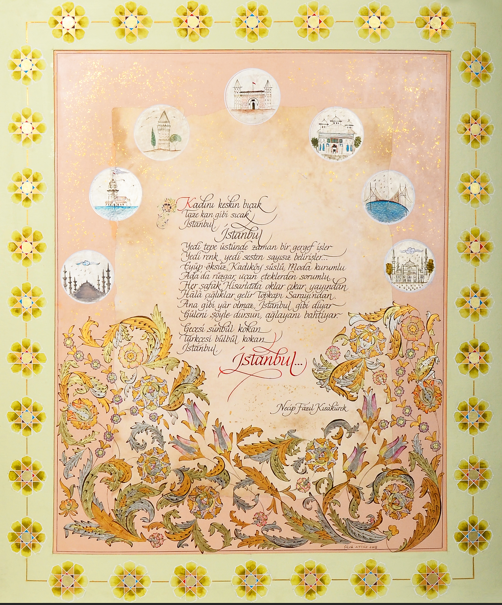 Kadını keskin bıçak
Taze kan gibi sıcak
İstanbul
İstanbul
Yedi tepe üstünde zaman bir gergef işler
Yedi renk, yedi sesten sayısız belirişler...
Eyüp öksüz, Kadıköy süslü, Moda kurumlu
Ada'da rüzgar, uçan eteklerden sorumlu
Her şafak Hisarlarda oklar çıkar yayından
Hala çığlıklar gelir Topkapı Sarayından
Ana gibi yar olmaz, İstanbul gibi diyar
Güleni şöyle dursun, ağlayanı bahtiyar
Gecesi sünbül kokan
Türkçesi bülbül kokan
İstanbul
İstanbul...
Necip Fazıl Kısakürek